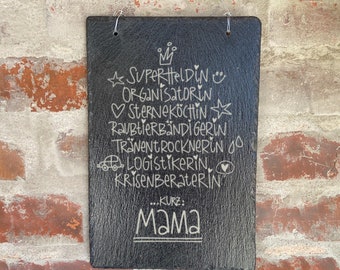 SUPERHELDIN
ORGANISATORIN
STERNEKÖCHIN
RAUBTIERBÄNDIGERIN
TRÄNENTROCKNERIN
LOGISTIKERIN
KRISENBERATERIN
...KURZ:
MAMA